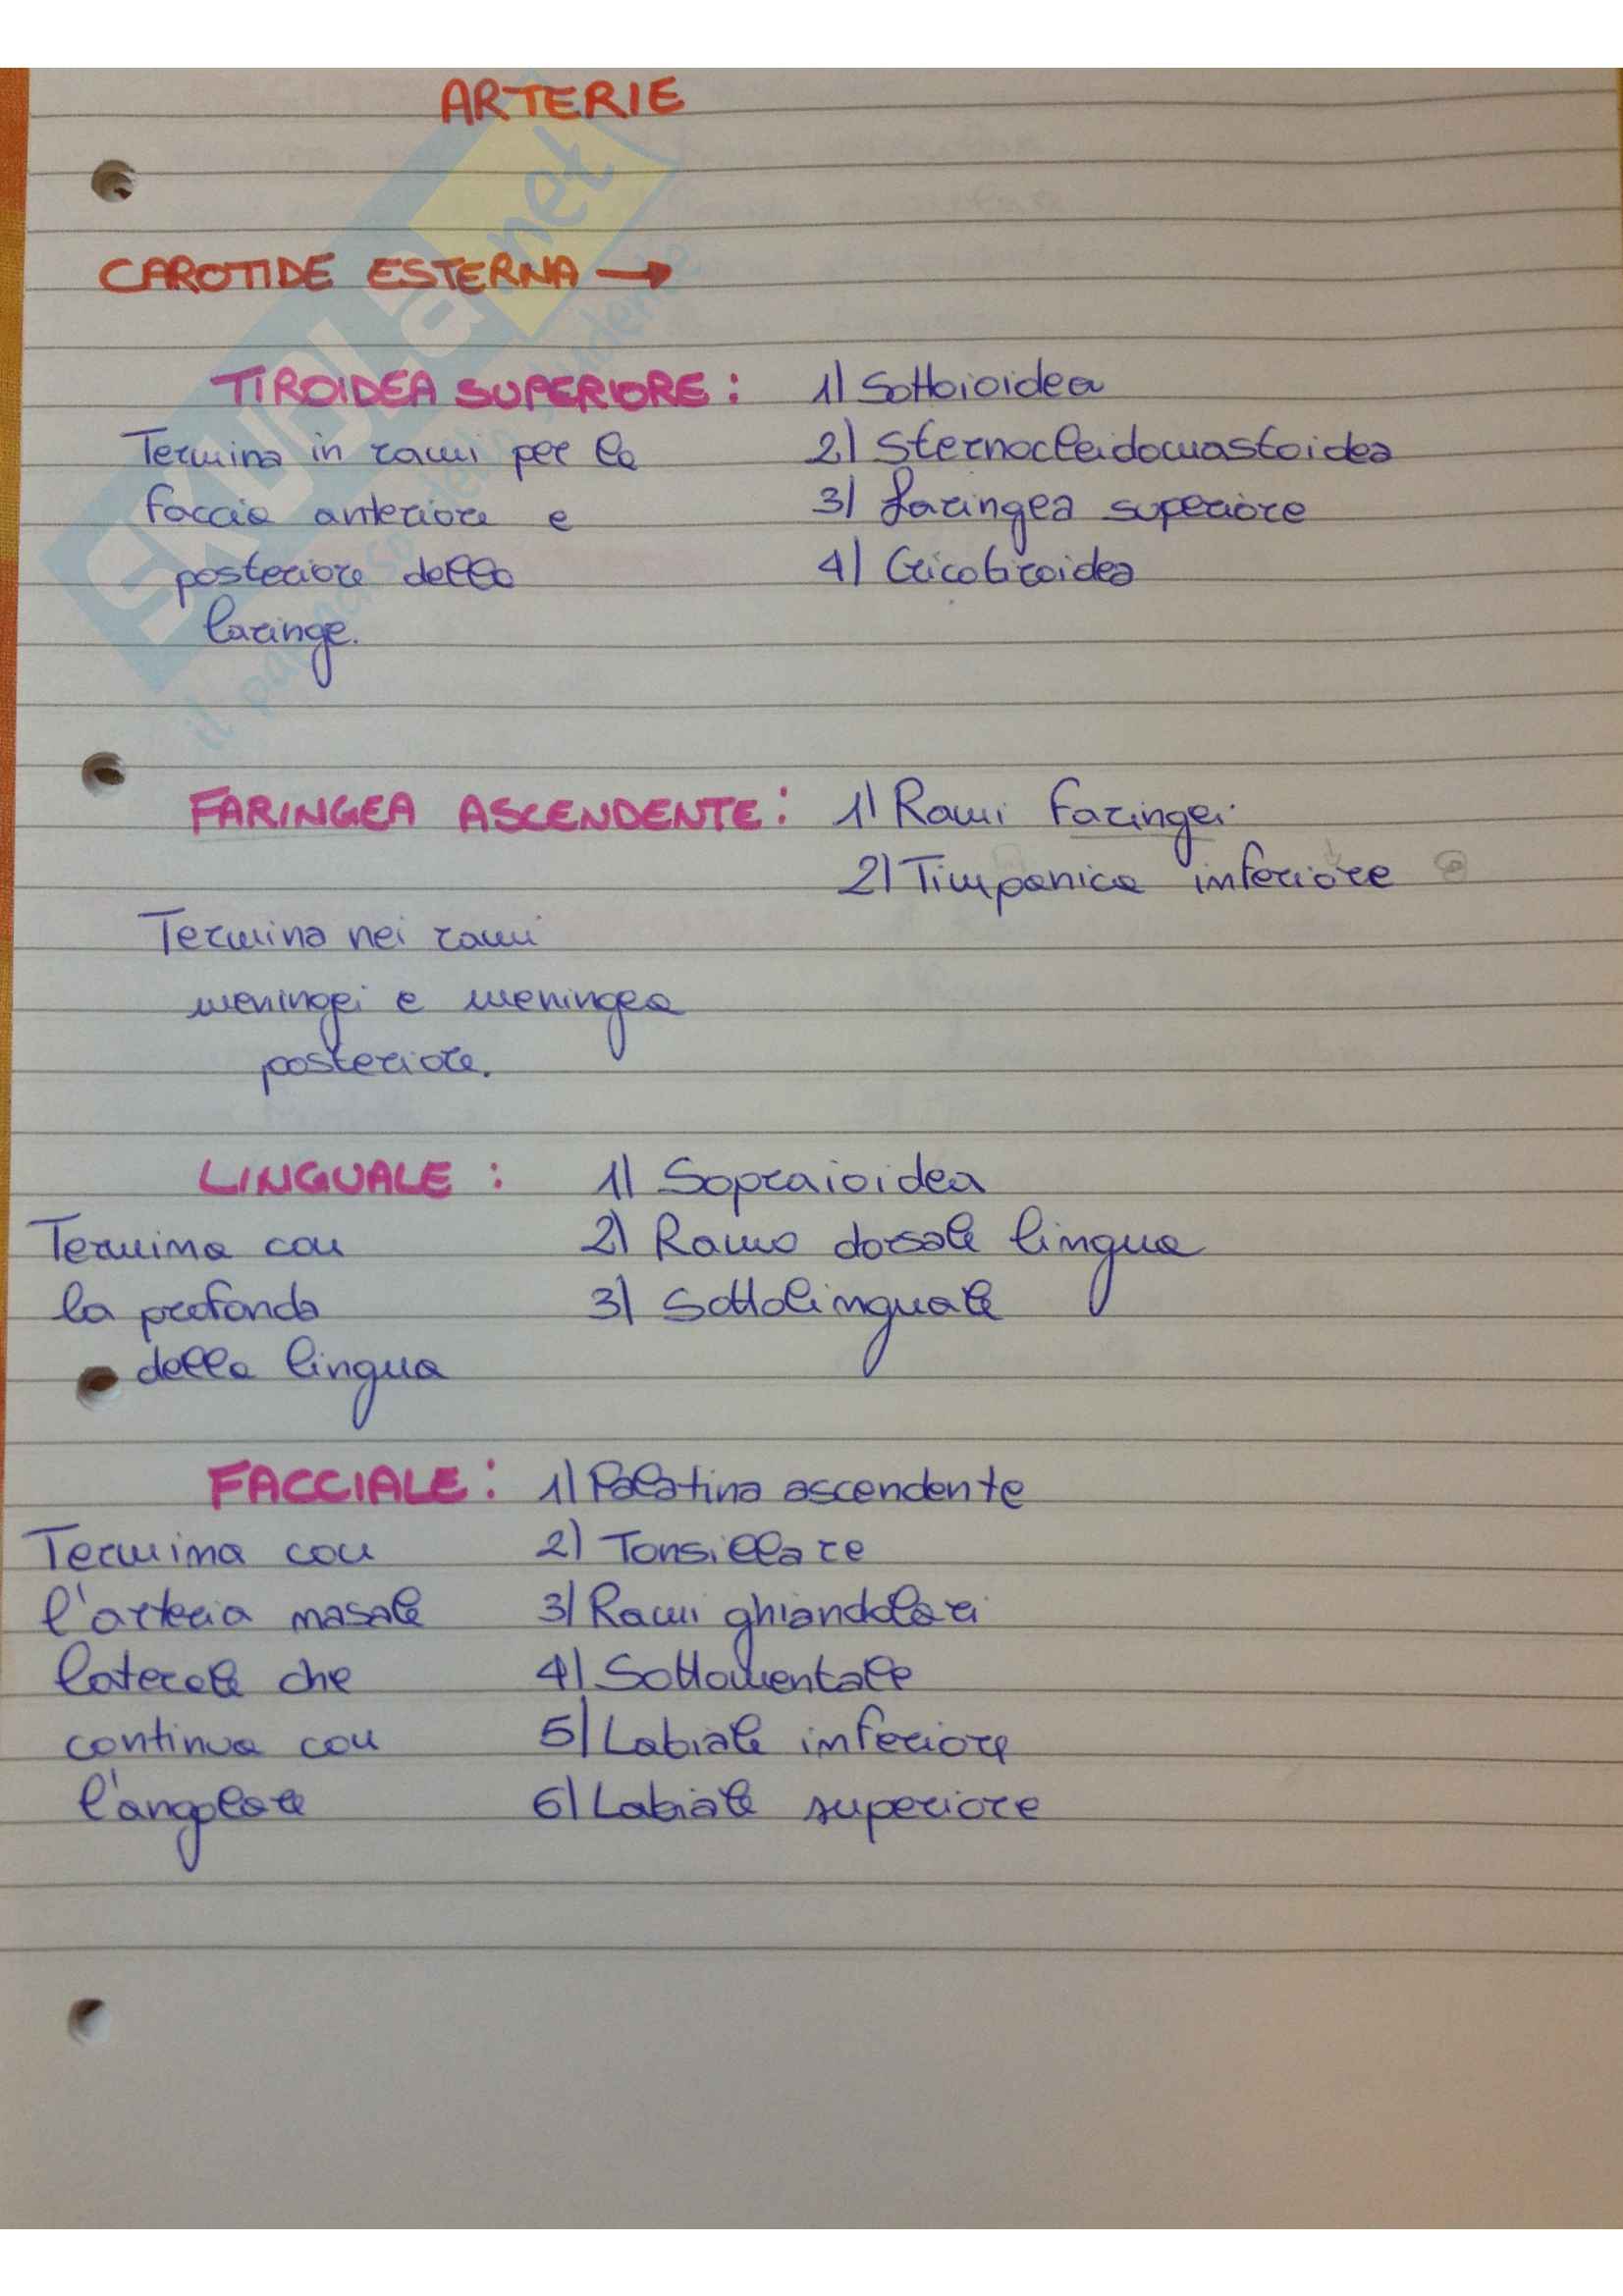 ARTERIE
CAROTIDE ESTERNA →
TIROIDEA SUPERIORE: 1) Sottoioidea
Termina in rami per la 2) Sternocleidomastoidea
faccia anteriore e 3) Laringea superiore
posteriore della 4) Cricotiroidea
laringe.
FARINGEA ASCENDENTE: 1) Rami faringei
2) Timpanica inferiore
Termina nei rami
meningei e meningea
posteriore.
LINGUALE: 1) Sopraioidea
Termina con 2) Ramo dorsale lingua
la profonda 3) Sottolinguale
della lingua
FACCIALE: 1) Palatina ascendente
Termina con 2) Tonsillare
l'arteria nasale 3) Rami ghiandolari
laterale che 4) Sottomentale
continua con 5) Labiale inferiore
l'angolare 6) Labiale superiore
SKUOLA.net